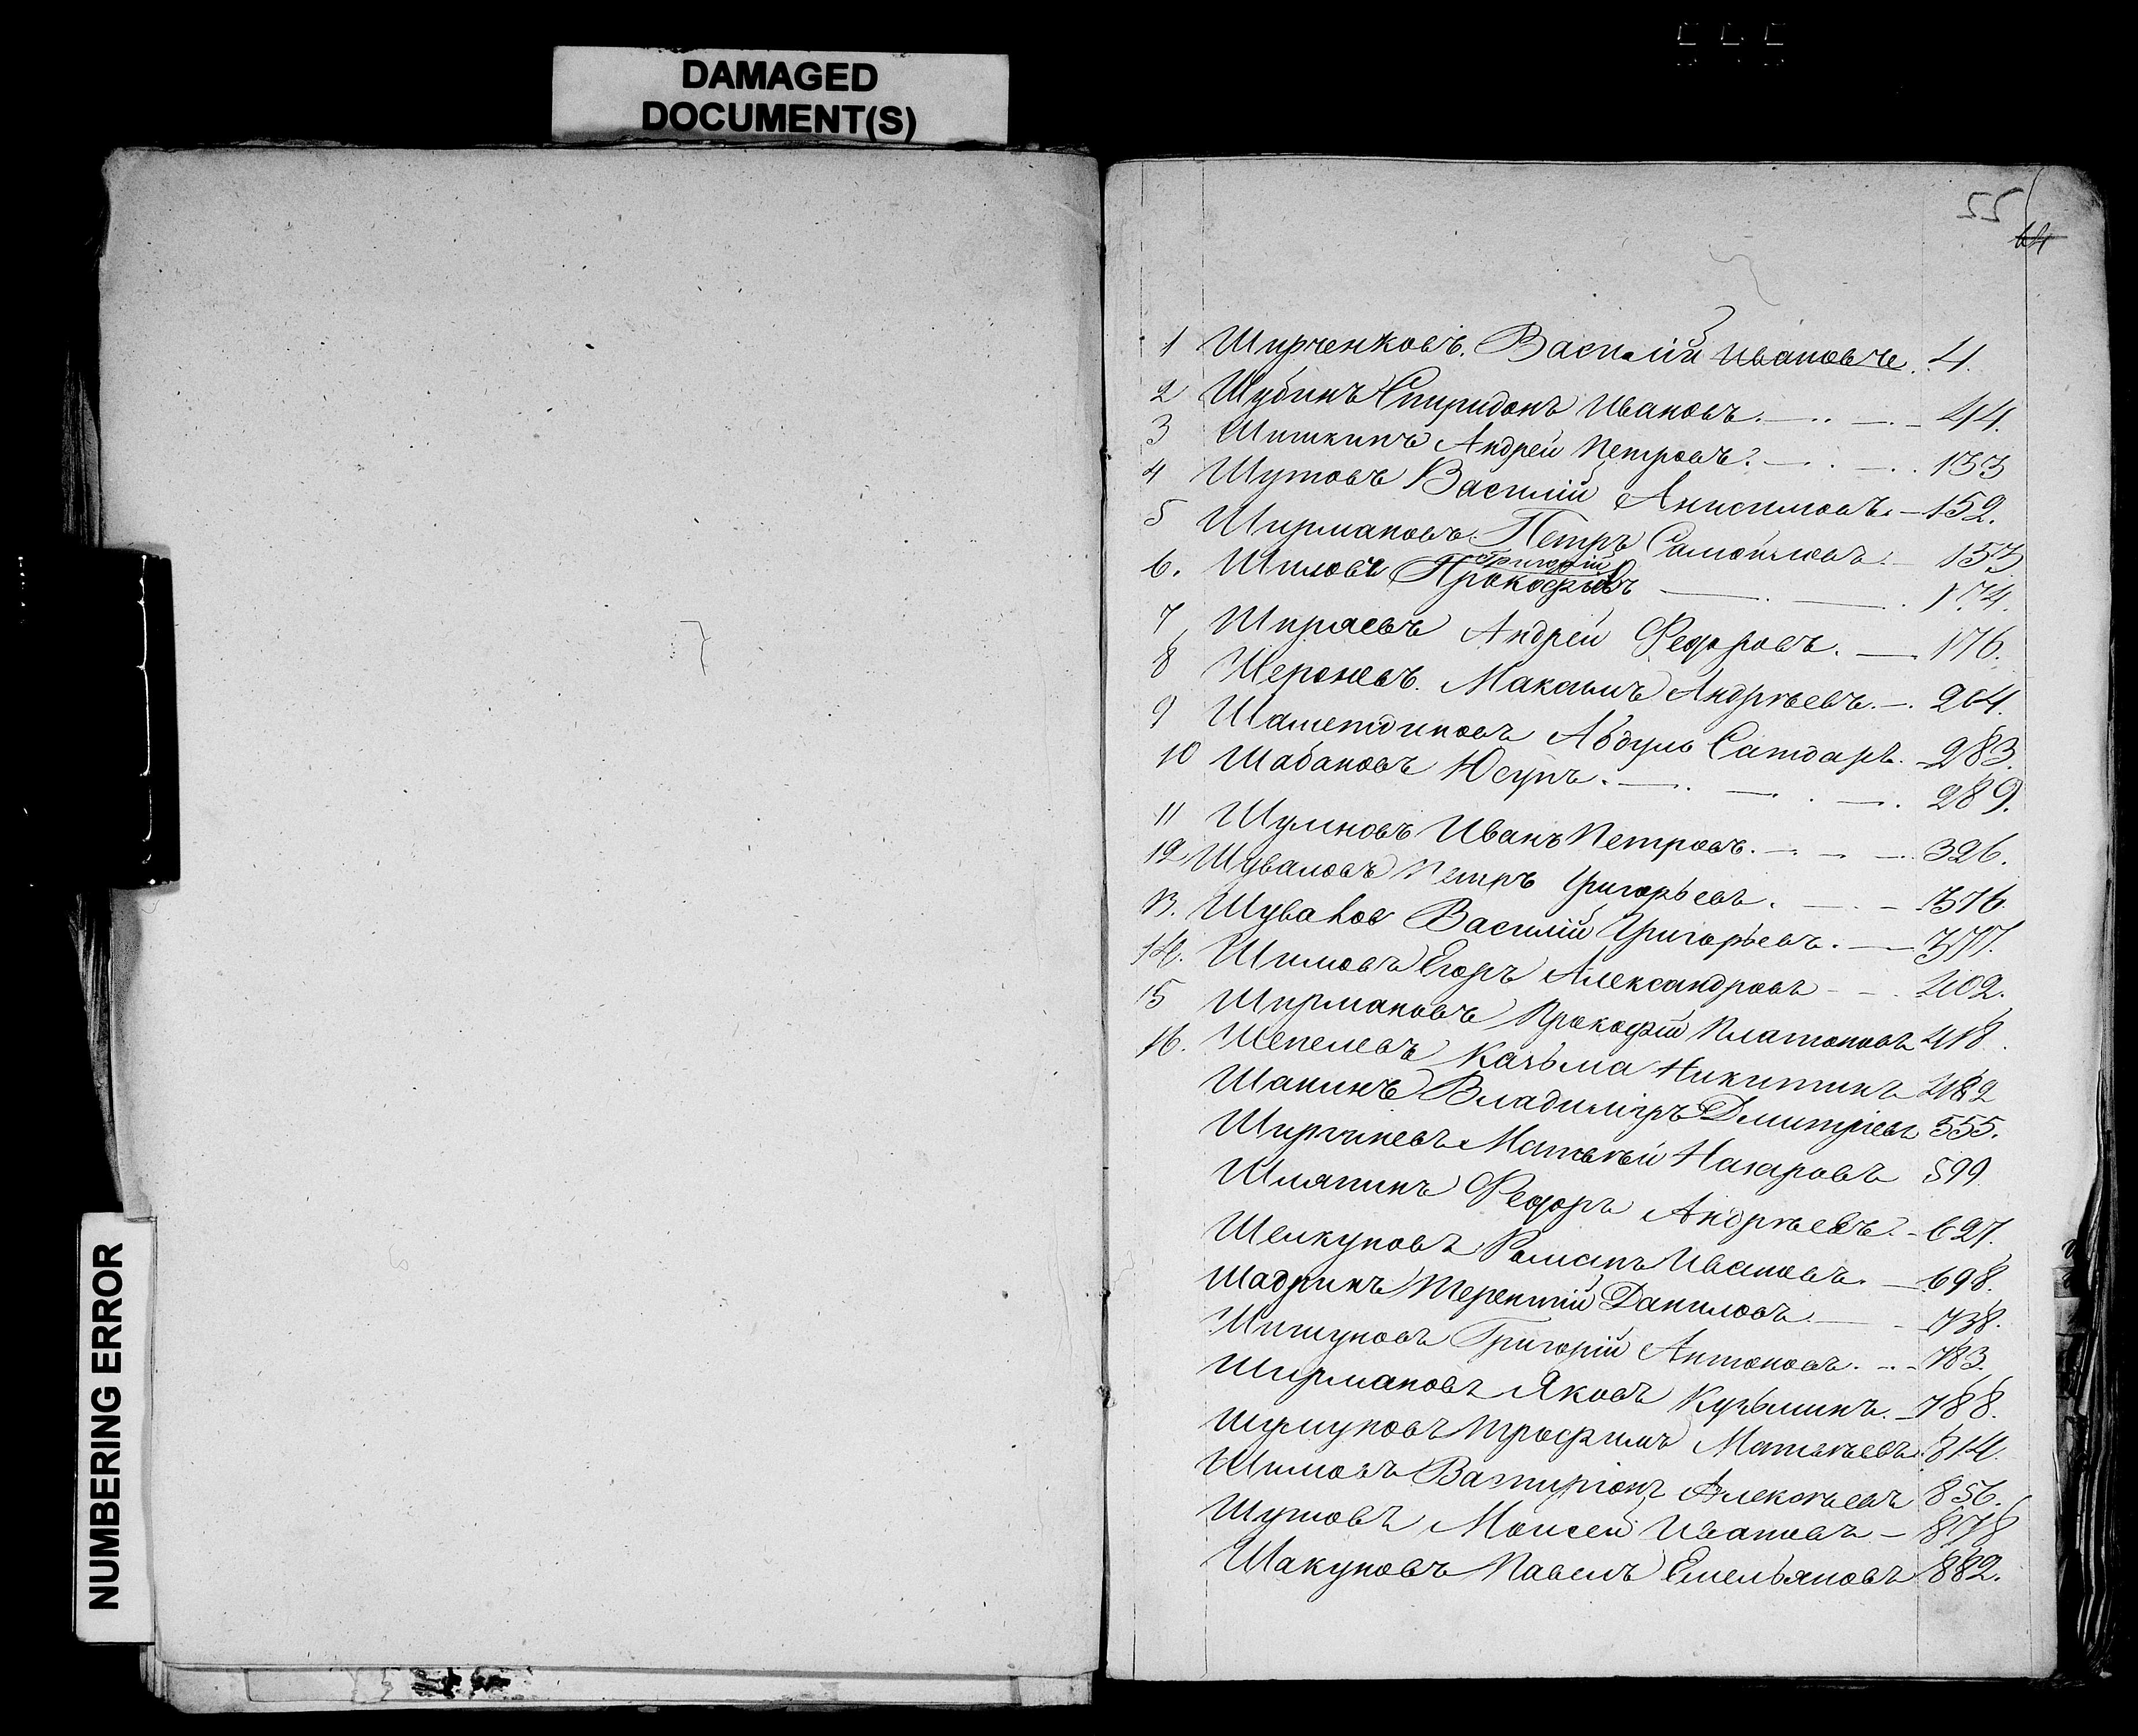 DAMAGED
DOCUMENT(S)
NUMBERING ERROR
55
64
1 Ширченковъ. Василій Ивановъ. 4.
2 Шубинъ Спиридонъ Ивановъ. 44.
3 Шишкинъ Андрей Петровъ. 133
4 Шутовъ Василій Анисимовъ. 152.
5 Ширмановъ. Петръ Самойловъ. 153
Григорій
6. Шиловъ Прокофьевъ 174.
7 Ширяевъ Андрей Федоровъ. 176.
8 Максимъ Андреевъ. 264.
9 Шаметдиновъ Абдулъ Сатдаръ. 283.
10 Шабановъ Юсупъ. 289.
11 Иванъ Петровъ. 326.
12 Шуваловъ Петръ Григорьевъ. 376.
13. Василій Григорьевъ. 377.
14. Шиловъ Егоръ Александровъ 402.
15 Ширмановъ Прокофій Платоновъ 418.
16. Шепелевъ Казьма Никитинъ 482
Шанинъ Владиміръ Дмитріевъ 555.
Матвѣй Назаровъ 599
Шляпинъ Федоръ Андрѣевъ. 627.
Шелкуновъ Романъ Ивановъ. 698.
Шадринъ Терентій Даниловъ 738.
Шишуновъ Григорій Антоновъ. 783.
Ширмановъ Яковъ Кузьминъ. 788.
Шушуновъ Трофимъ Матвѣевъ. 814.
Шиловъ Алексѣевъ 856.
Шутовъ Моисей Ивановъ 878
Шакуновъ Павелъ Емельяновъ 882.